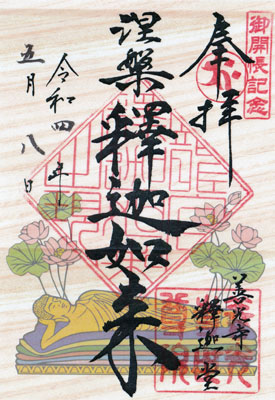 御開帳記念
奉拝
涅槃釋迦如来
令和四年
五月八日
善光寺
釋迦堂